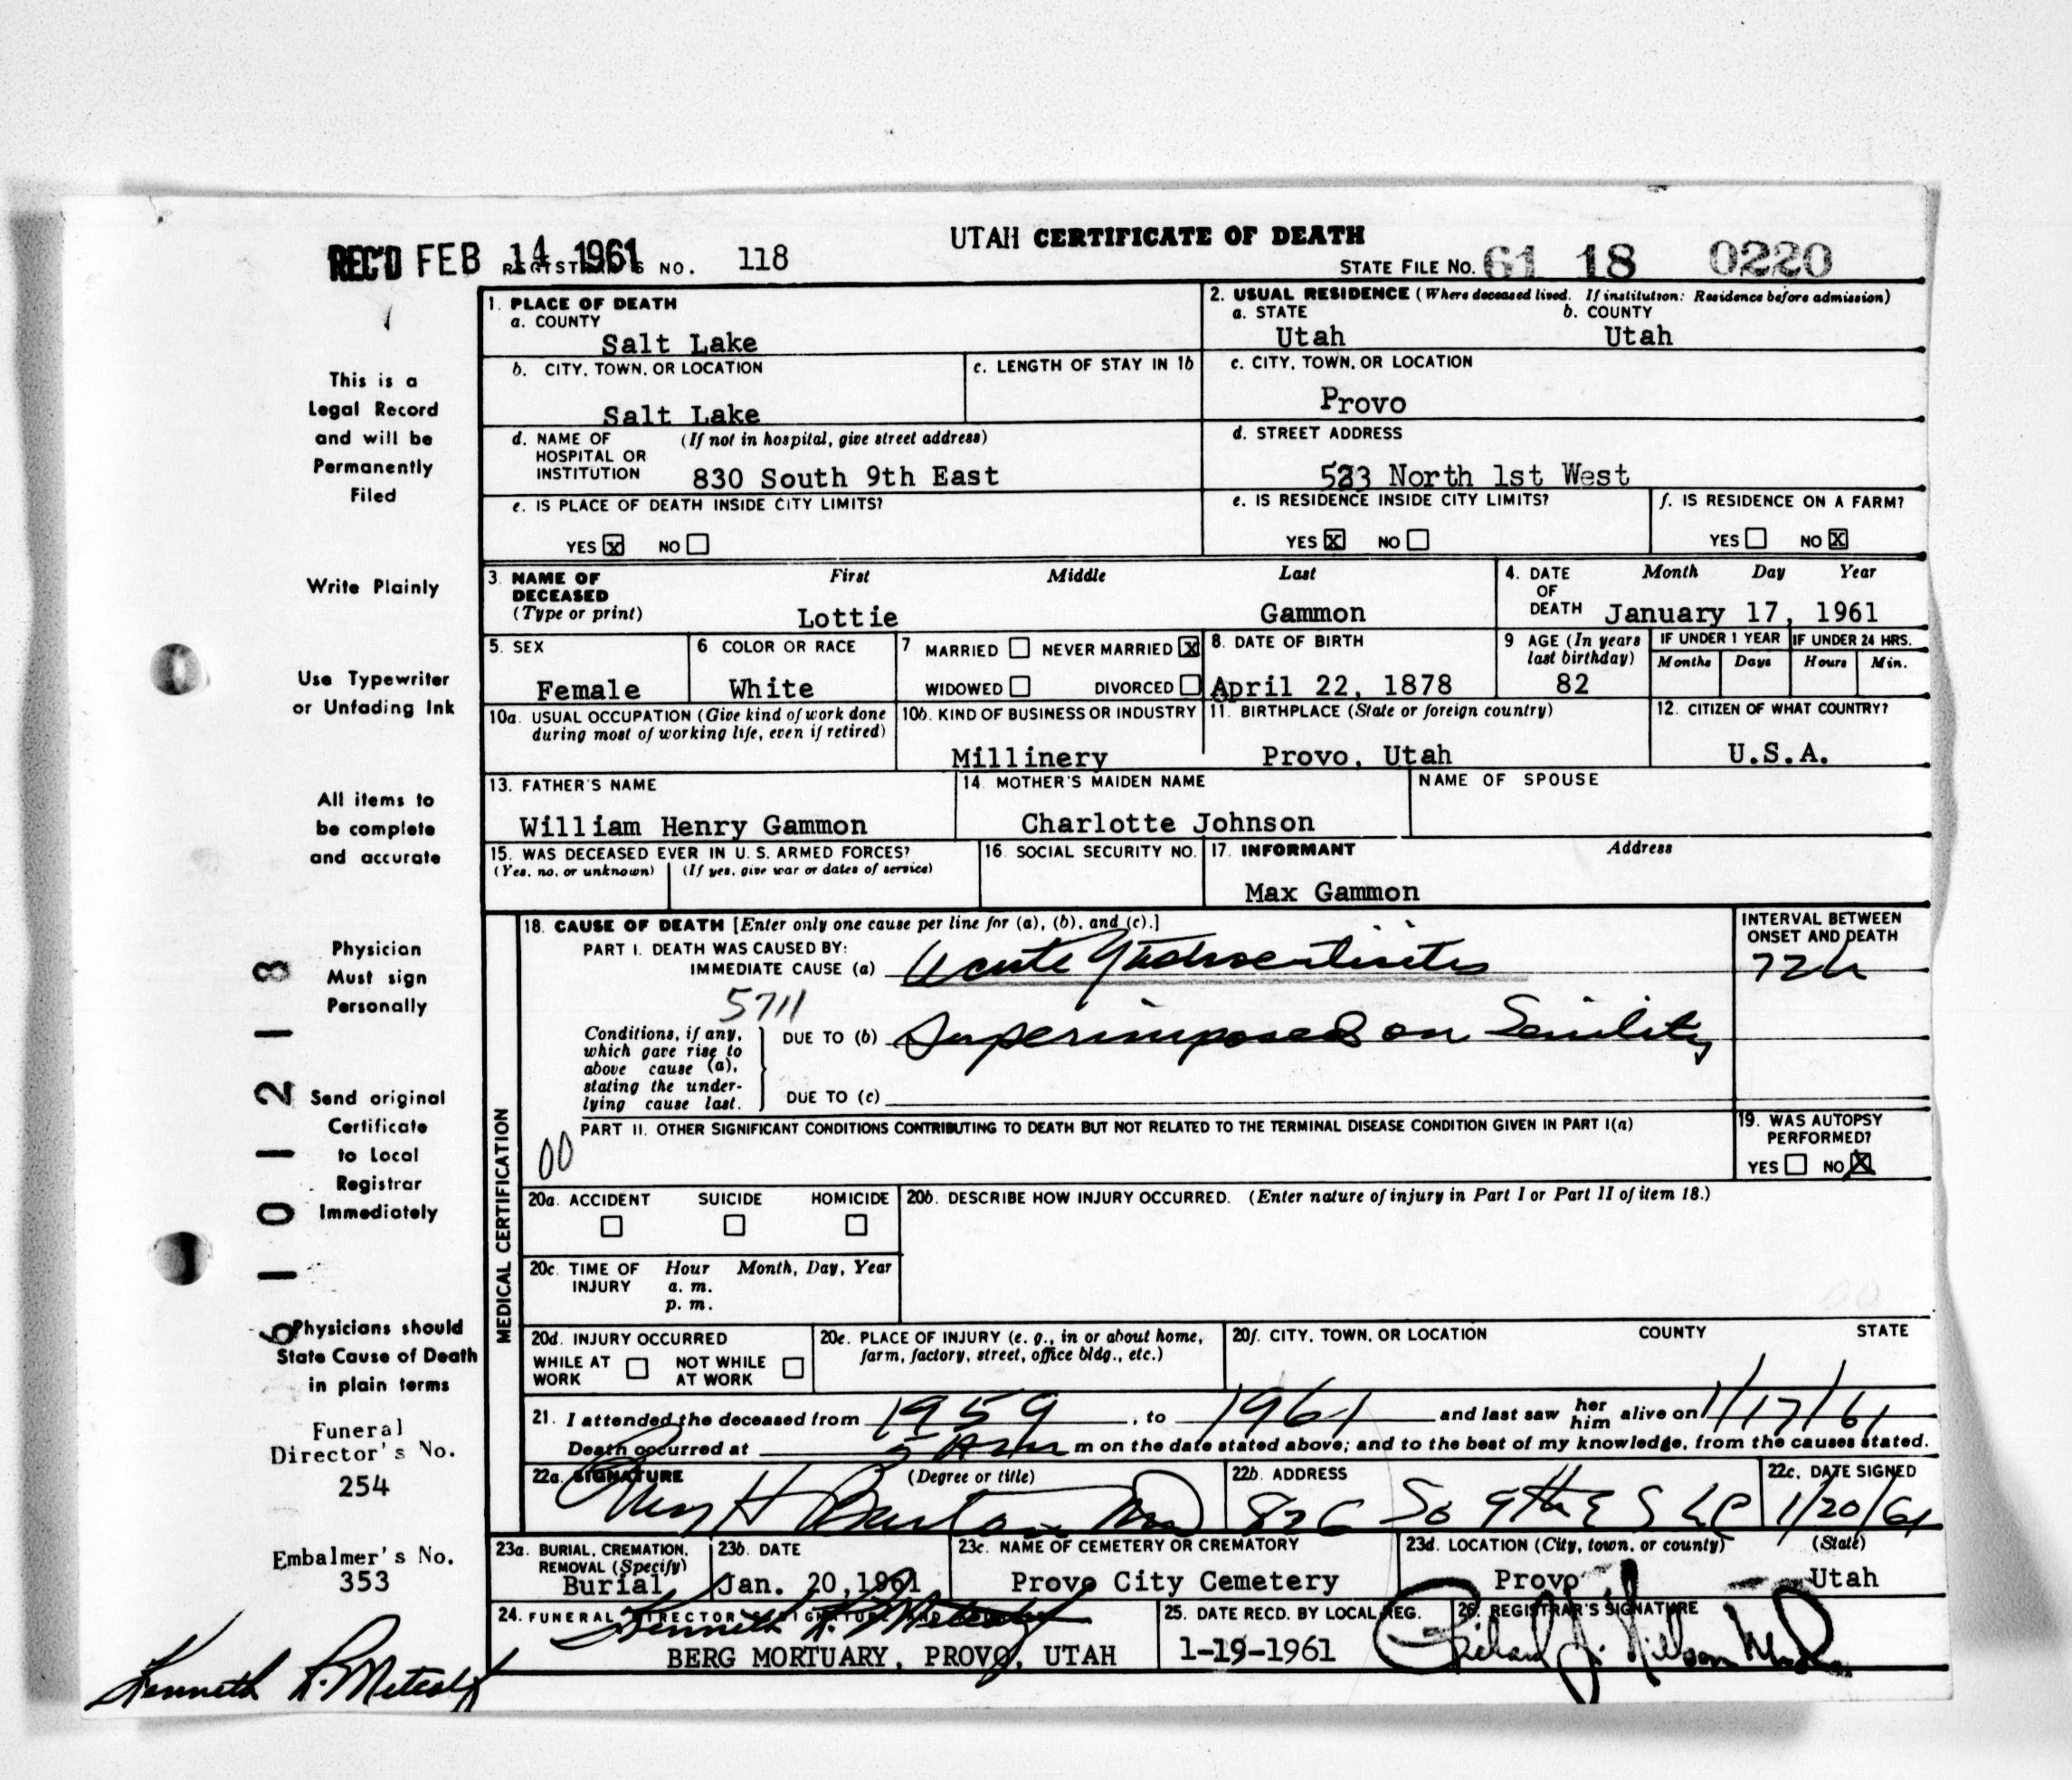 UTAH CERTIFICATE OF DEATH
REC'D FEB 14 1961
REGISTRAR'S NO. 118
STATE FILE NO. 61 18 0220
This is a
Legal Record
and will be
Permanently
Filed
Write Plainly
Use Typewriter
or Unfading Ink
All items to
be complete
and accurate
Physician
Must sign
Personally
Send original
Certificate
to Local
Registrar
Immediately
Physicians should
State Cause of Death
in plain terms
Funeral
Director's No.
254
Embalmer's No.
353
Kenneth R. Metcalf
1. PLACE OF DEATH
a. COUNTY
Salt Lake
b. CITY, TOWN, OR LOCATION
Salt Lake
c. LENGTH OF STAY IN 1b
d. NAME OF (If not in hospital, give street address)
HOSPITAL OR
INSTITUTION 830 South 9th East
e. IS PLACE OF DEATH INSIDE CITY LIMITS?
YES X NO
2. USUAL RESIDENCE (Where deceased lived. If institution: Residence before admission)
a. STATE b. COUNTY
Utah Utah
c. CITY, TOWN, OR LOCATION
Provo
d. STREET ADDRESS
533 North 1st West
e. IS RESIDENCE INSIDE CITY LIMITS?
YES X NO
f. IS RESIDENCE ON A FARM?
YES NO X
3. NAME OF First Middle Last
DECEASED
(Type or print) Lottie Gammon
4. DATE Month Day Year
OF
DEATH January 17, 1961
5. SEX
Female
6 COLOR OR RACE
White
7 MARRIED NEVER MARRIED X
WIDOWED DIVORCED
8. DATE OF BIRTH
April 22, 1878
9 AGE (In years
last birthday)
82
IF UNDER 1 YEAR
Months Days
IF UNDER 24 HRS.
Hours Min.
10a. USUAL OCCUPATION (Give kind of work done
during most of working life, even if retired)
10b. KIND OF BUSINESS OR INDUSTRY
Millinery
11. BIRTHPLACE (State or foreign country)
Provo, Utah
12. CITIZEN OF WHAT COUNTRY?
U.S.A.
13. FATHER'S NAME
William Henry Gammon
14 MOTHER'S MAIDEN NAME
Charlotte Johnson
NAME OF SPOUSE
15. WAS DECEASED EVER IN U. S. ARMED FORCES?
(Yes, no, or unknown) (If yes, give war or dates of service)
16. SOCIAL SECURITY NO.
17. INFORMANT Address
Max Gammon
MEDICAL CERTIFICATION
18. CAUSE OF DEATH [Enter only one cause per line for (a), (b), and (c).]
PART I. DEATH WAS CAUSED BY:
IMMEDIATE CAUSE (a) Acute
5711
Conditions, if any,
which gave rise to
above cause (a),
stating the under-
lying cause last.
DUE TO (b) Superimposed on Senility
DUE TO (c)
INTERVAL BETWEEN
ONSET AND DEATH
72h
PART II. OTHER SIGNIFICANT CONDITIONS CONTRIBUTING TO DEATH BUT NOT RELATED TO THE TERMINAL DISEASE CONDITION GIVEN IN PART I(a)
00
19. WAS AUTOPSY
PERFORMED?
YES NO X
20a. ACCIDENT SUICIDE HOMICIDE
20b. DESCRIBE HOW INJURY OCCURRED. (Enter nature of injury in Part I or Part II of item 18.)
20c. TIME OF Hour Month, Day, Year
INJURY a. m.
p. m.
20d. INJURY OCCURRED
WHILE AT NOT WHILE
WORK AT WORK
20e. PLACE OF INJURY (e. g., in or about home,
farm, factory, street, office bldg., etc.)
20f. CITY, TOWN, OR LOCATION COUNTY STATE
21. I attended the deceased from 1959, to 1961 and last saw her him alive on 1/17/61
Death occurred at 5 A m on the date stated above; and to the best of my knowledge, from the causes stated.
22a. SIGNATURE (Degree or title)
H Burton MD
22b. ADDRESS
826 So 9th E S L C
22c. DATE SIGNED
1/20/61
23a. BURIAL, CREMATION,
REMOVAL (Specify)
Burial
23b. DATE
Jan. 20, 1961
23c. NAME OF CEMETERY OR CREMATORY
Provo City Cemetery
23d. LOCATION (City, town, or county) (State)
Provo Utah
24. FUNERAL DIRECTOR'S SIGNATURE AND
Kenneth R. Metcalf
BERG MORTUARY, PROVO, UTAH
25. DATE RECD. BY LOCAL REG.
1-19-1961
26. REGISTRAR'S SIGNATURE